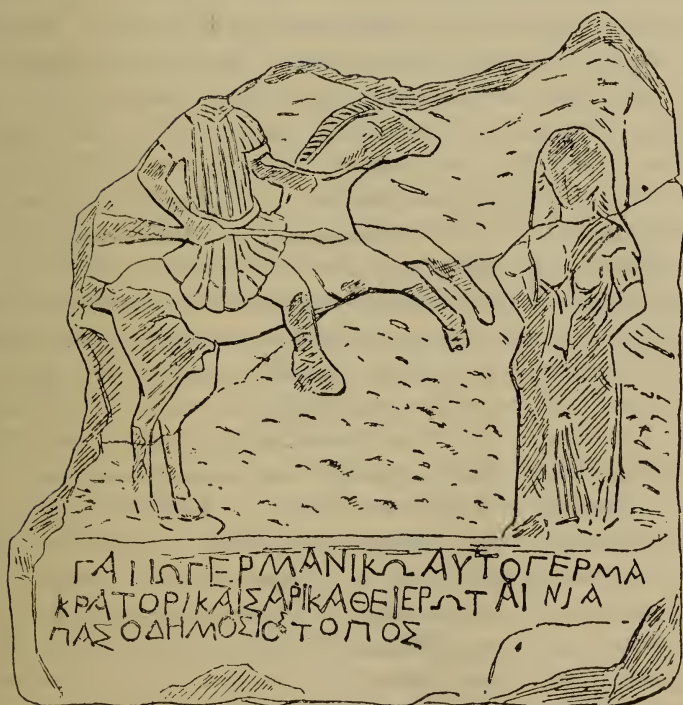 ΓΑΙΩΓΕΡΜΑΝΙΚΩΑΥΤΟΓΕΡΜΑ
ΚΡΑΤΟΡΙΚΑΙΣΑΡΙΚΑΘΕΙΕΡΩΤΑΙ ΝΙΑ
ΠΑΣΟΔΗΜΟΣΙΟΣΤΟΠΟΣ